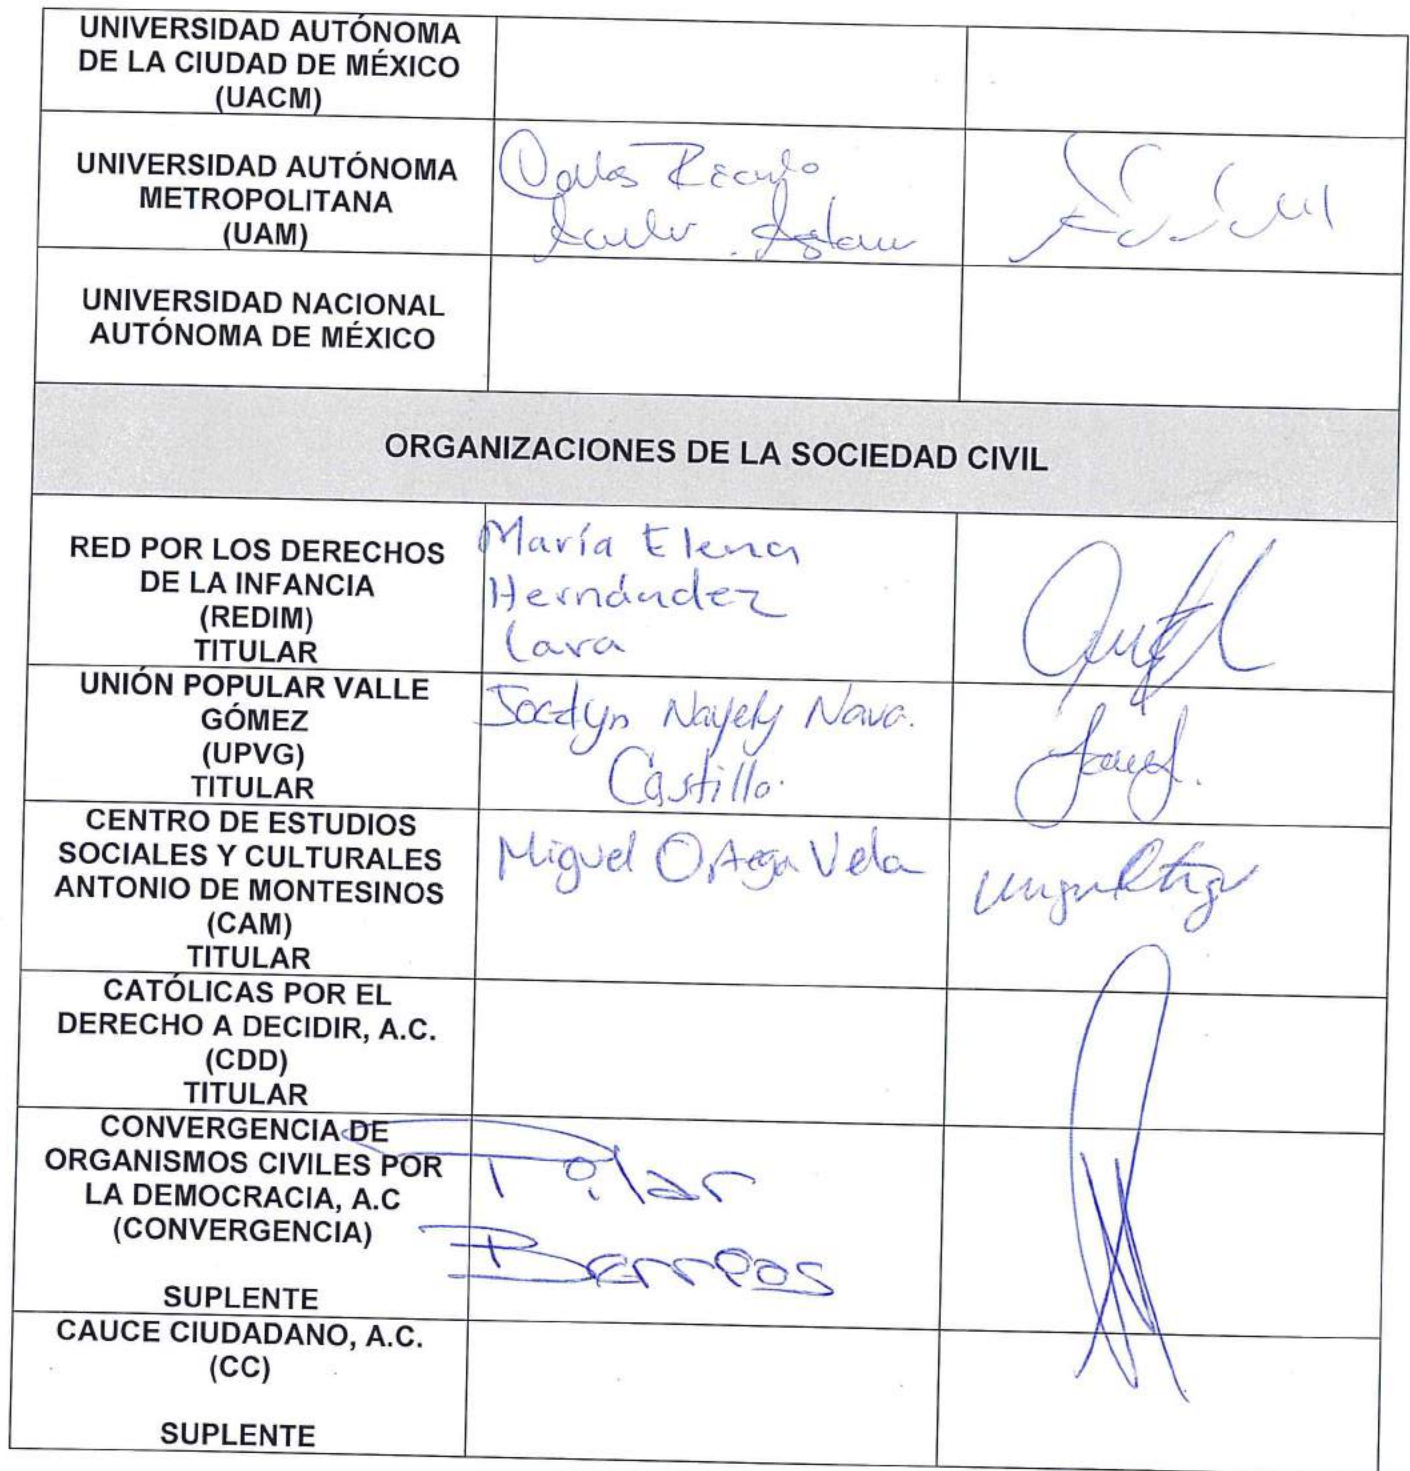 UNIVERSIDAD AUTÓNOMA
DE LA CIUDAD DE MÉXICO
(UACM)
UNIVERSIDAD AUTÓNOMA
METROPOLITANA
(UAM)
Carlos Ricardo
UNIVERSIDAD NACIONAL
AUTÓNOMA DE MÉXICO
ORGANIZACIONES DE LA SOCIEDAD CIVIL
RED POR LOS DERECHOS
DE LA INFANCIA
(REDIM)
TITULAR
María Elena
Hernández
Lara
UNIÓN POPULAR VALLE
GÓMEZ
(UPVG)
TITULAR
Jocelyn Nayely Nava.
Castillo.
CENTRO DE ESTUDIOS
SOCIALES Y CULTURALES
ANTONIO DE MONTESINOS
(CAM)
TITULAR
Miguel Ortega Vela
CATÓLICAS POR EL
DERECHO A DECIDIR, A.C.
(CDD)
TITULAR
CONVERGENCIA DE
ORGANISMOS CIVILES POR
LA DEMOCRACIA, A.C
(CONVERGENCIA)
SUPLENTE
Pilar
Berrios
CAUCE CIUDADANO, A.C.
(CC)
SUPLENTE